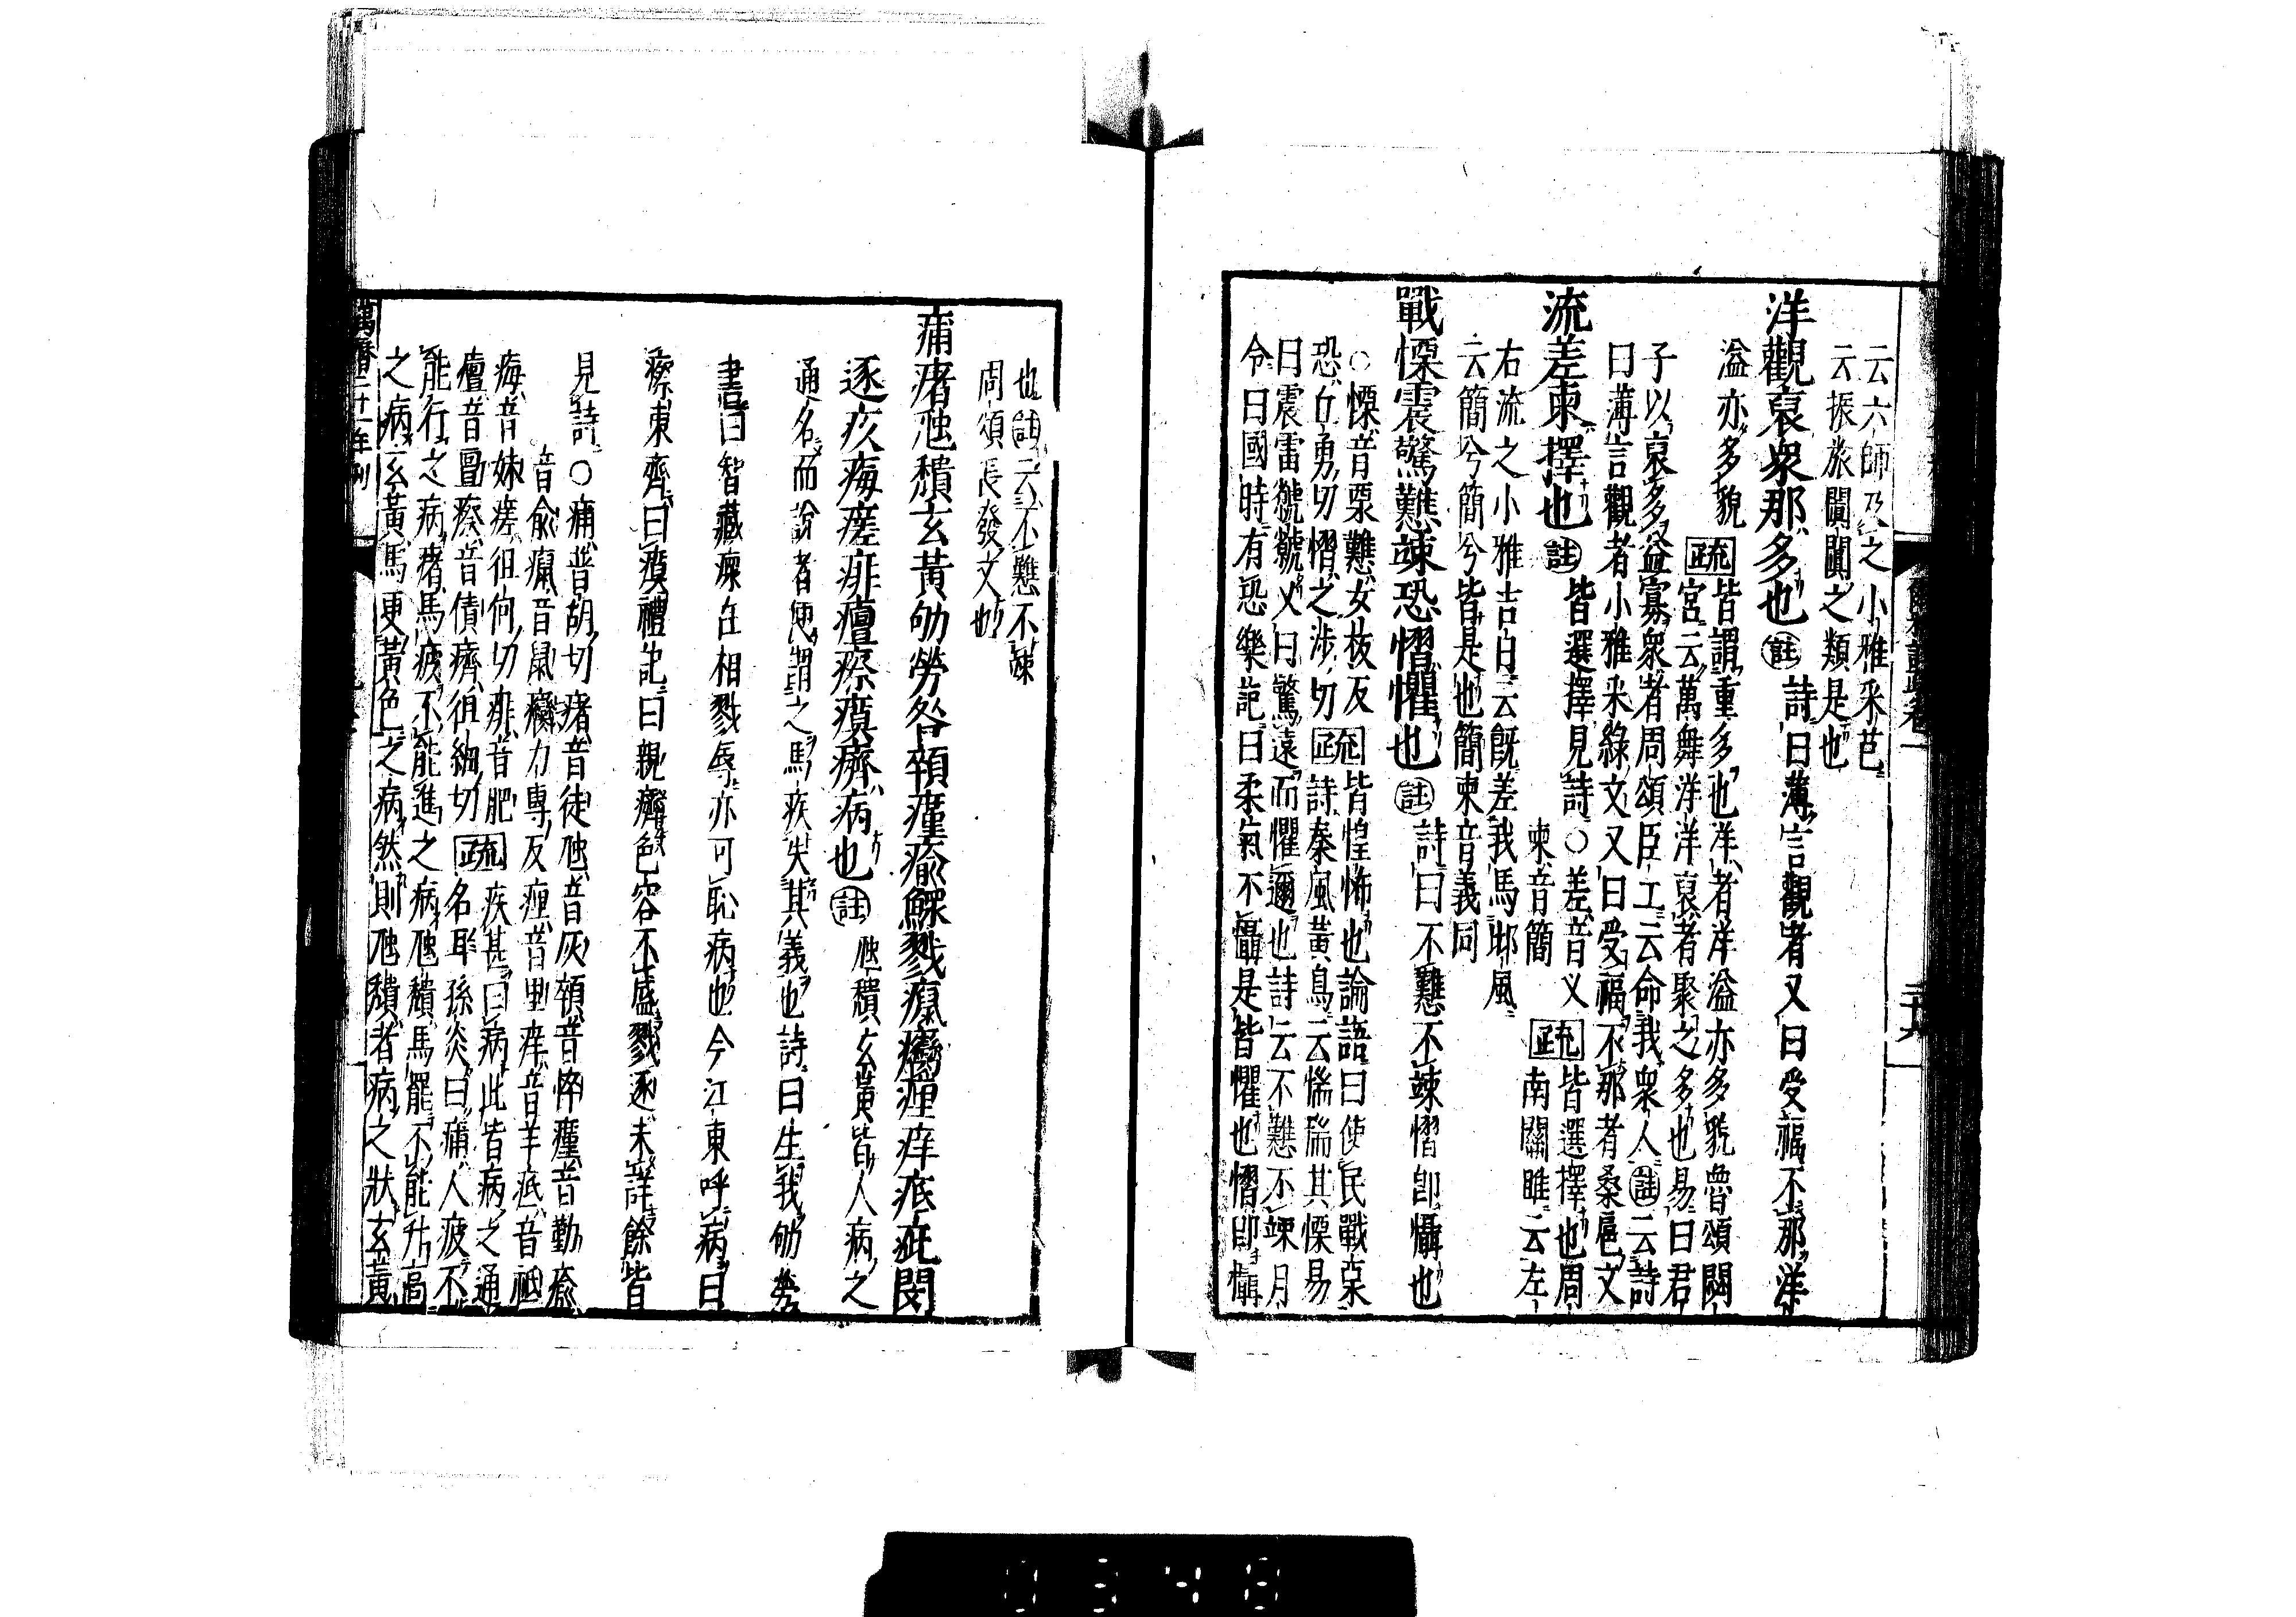 云六師及之小雅采芑
云振旅闐闐之類是也
洋觀裒衆那多也註詩曰薄言觀者又曰受福不那洋
溢亦多貌疏皆謂重多也洋者洋溢亦多貌魯頌閟
宮云萬舞洋洋裒者聚之多也易曰君
子以裒多益寡衆者周頌臣工云命我衆人註云詩
曰薄言觀者小雅采綠文又曰受福不那者桑扈文
流差柬擇也註皆選擇見詩○差音义
柬音簡疏皆選擇也周
南關雎云左
右流之小雅吉日云既差我馬邶風
云簡兮簡兮皆是也簡柬音義同
戰慄震驚戁竦恐慴懼也註詩曰不戁不竦慴即懾也
○慄音栗戁女板反
恐丘勇切慴之涉切疏皆惶怖也論語曰使民戰栗
詩秦風黃鳥云惴惴其慄易
曰震雷虩虩又曰驚遠而懼邇也詩云不戁不竦月
令曰國時有恐樂記曰柔氣不懾是皆懼也慴即懾
也註云不戁不竦
周頌長發文也
痡瘏虺頹玄黃劬勞咎顇瘽瘉鰥戮癙癵瘇痒疧疵閔
逐疚痗瘥痱癉瘵瘼癠病也註虺頹玄黃皆人病之
通名而說者便謂之馬疾失其義也詩曰生我劬勞
書曰智藏瘝在相戮辱亦可恥病也今江東呼病曰
瘵東齊曰瘼禮記曰親癠色容不盛戮逐未詳餘皆
見詩○痡普胡切瘏音徒虺音灰顇音悴瘽音勤瘉
音俞癙音鼠癵力專反瘇音里痒音羊疧音祗
痗音妹瘥徂何切痱音肥
癉音亶瘵音債癠徂細切疏疾甚曰病此皆病之通
名耳孫炎曰痡人疲不
能行之病瘏馬疲不能進之病虺頹馬罷不能升高
之病玄黃馬更黃色之病然則虺頹者病之狀玄黃